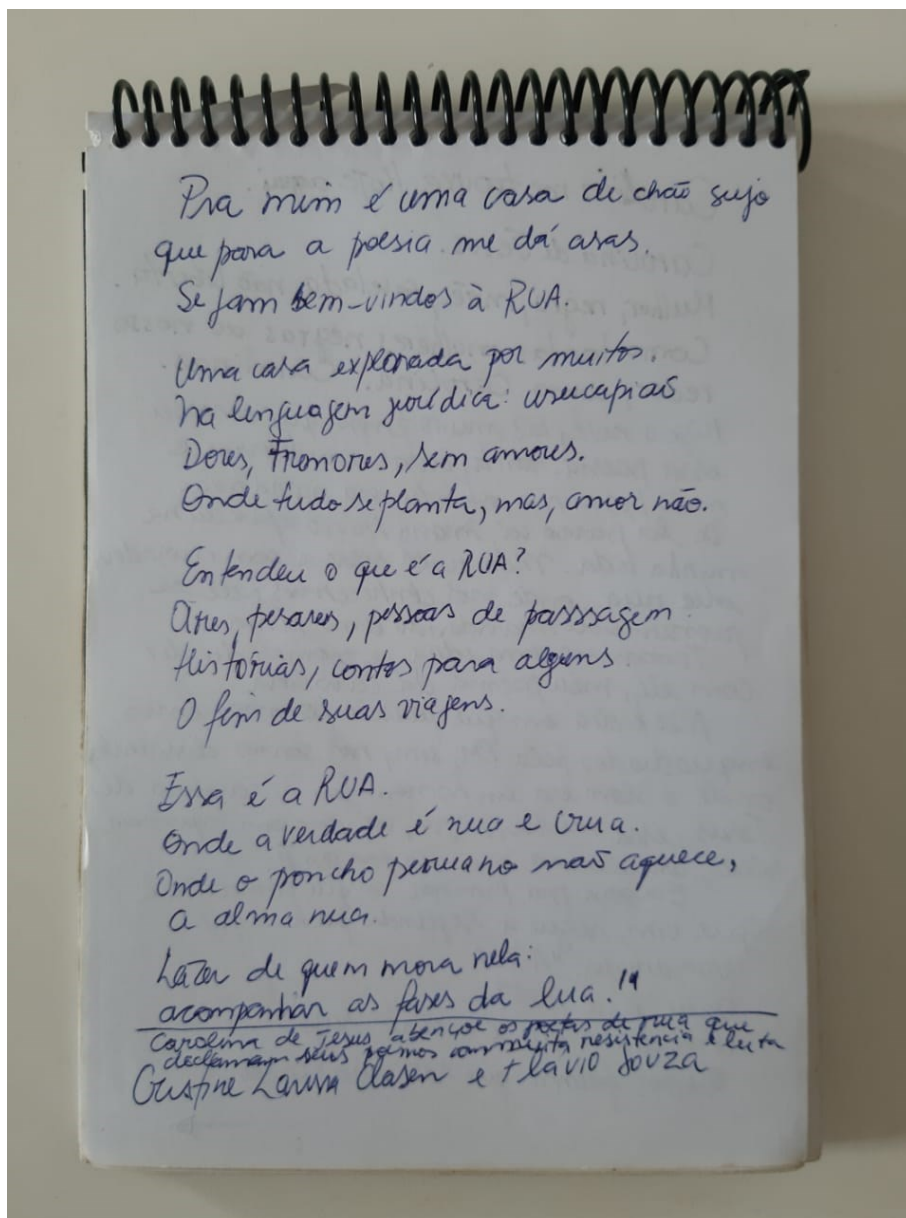 Pra mim é uma casa de chão sujo
que para a poesia me dá asas.
Sejam bem-vindos à RUA.
Uma casa explorada por muitos.
na lenguagem jurídica: usucapião
Dores, Tremores, sem amores.
Onde tudo se planta, mas, amor não.
Entendeu o que é a RUA?
Ares, pesares, pessoas de passsagem.
Histórias, contos para alguns
O fim de suas viagens.
Essa é a RUA.
Onde a verdade é nua e crua.
Onde o poncho peruano não aquece,
a alma nua.
Lazer de quem mora nela:
acompanhar as fases da lua!"
Carolina de Jesus abençoe os poetas de rua que
declamam seus poemas com muita resistência e luta
Cristine Larissa Clasen e Flávio Souza